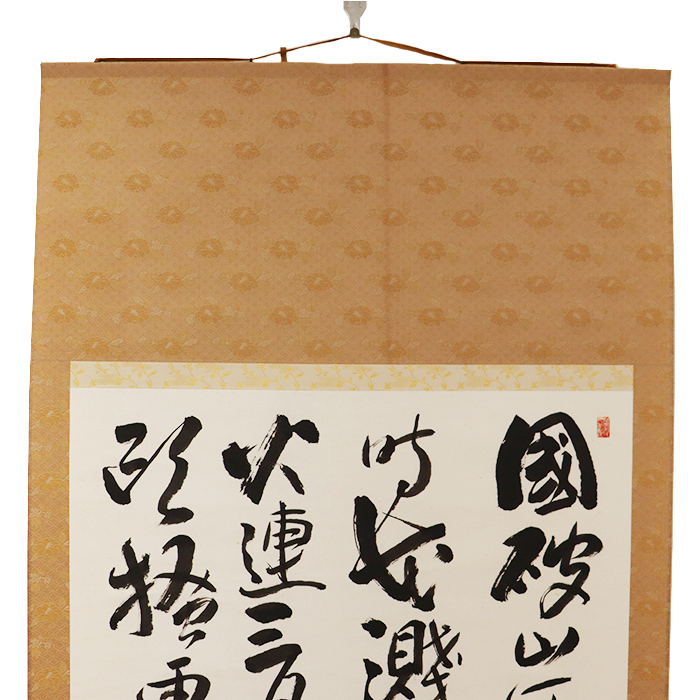 國破山
時花濺
火連三月
頭搔更